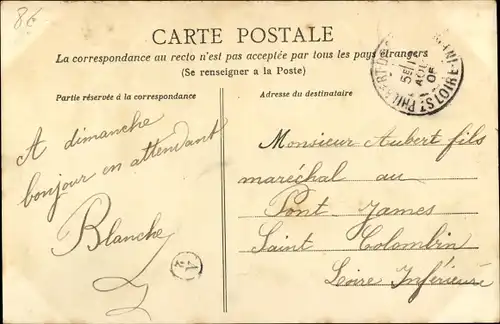 8€
CARTE POSTALE
La correspondance au recto n'est pas acceptée par tous les pays étrangers
(Se renseigner a la Poste)
Partie réservée à la correspondance
Adresse du destinataire
A dimanche
bonjour en attendant
Blanche
Monsieur Aubert fils
maréchal au
Pont James
Saint Colombin
Loire Inférieure